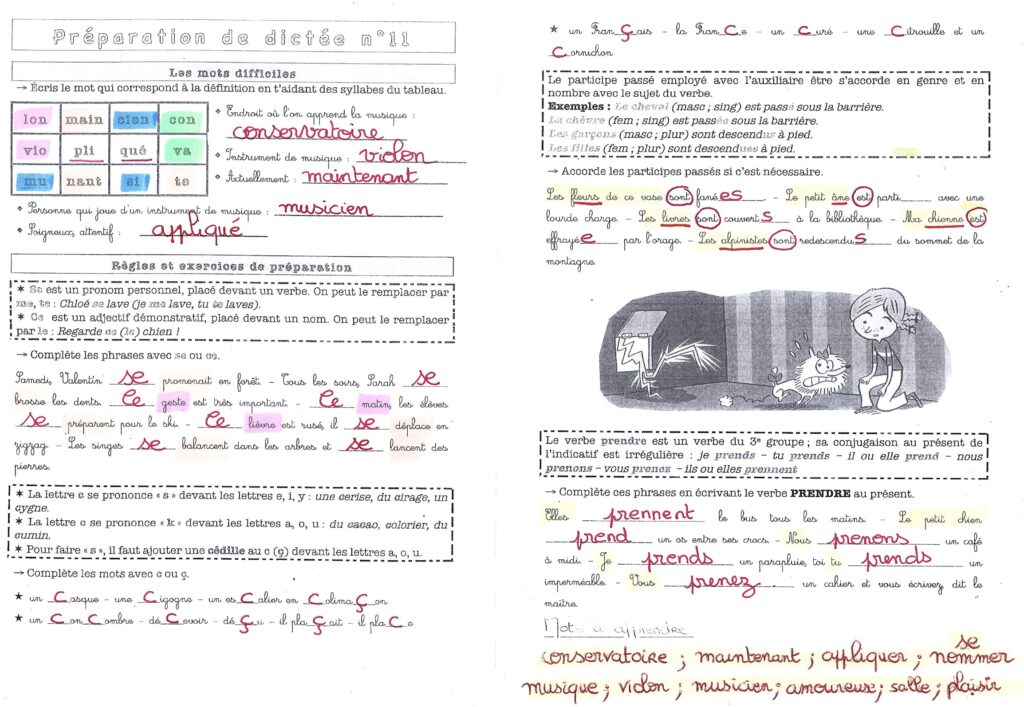 Préparation de dictée n°11
Les mots difficiles
→ Écris le mot qui correspond à la définition en t'aidant des syllabes du tableau.
lon main cien con
vio pli qué va
mu nant si te
• Endroit où l'on apprend la musique :
conservatoire
• Instrument de musique : violon
• Actuellement : maintenant
• Personne qui joue d'un instrument de musique : musicien
• Soigneux, attentif : appliqué
Règles et exercices de préparation
✶ Se est un pronom personnel, placé devant un verbe. On peut le remplacer par
me, te : Chloé se lave (je me lave, tu te laves).
✶ Ce est un adjectif démonstratif, placé devant un nom. On peut le remplacer
par le : Regarde ce (le) chien !
→ Complète les phrases avec se ou ce.
Samedi, Valentin se promenait en forêt. – Tous les soirs, Sarah se
brosse les dents. Ce geste est très important. – Ce matin, les élèves
se préparent pour le ski. – Ce lièvre est rusé, il se déplace en
zigzag. – Les singes se balancent dans les arbres et se lancent des
pierres.
✶ La lettre c se prononce « s » devant les lettres e, i, y : une cerise, du cirage, un
cygne.
✶ La lettre c se prononce « k » devant les lettres a, o, u : du cacao, colorier, du
cumin.
✶ Pour faire « s », il faut ajouter une cédille au c (ç) devant les lettres a, o, u.
→ Complète les mots avec c ou ç.
★ un Casque – une Cigogne – un esCalier en ColimaÇon
★ un ConCombre – déCevoir – déÇu – il plaÇait – il plaCe
★ un FranÇais – la FranCe – un Curé – une Citrouille et un
Cornichon
Le participe passé employé avec l'auxiliaire être s'accorde en genre et en
nombre avec le sujet du verbe.
Exemples : Le cheval (masc ; sing) est passé sous la barrière.
La chèvre (fem ; sing) est passée sous la barrière.
Les garçons (masc ; plur) sont descendus à pied.
Les filles (fem ; plur) sont descendues à pied.
→ Accorde les participes passés si c'est nécessaire.
Les fleurs de ce vase sont fanées. – Le petit âne est parti avec une
lourde charge. – Les livres sont couverts à la bibliothèque. – Ma chienne est
effrayée par l'orage. – Les alpinistes sont redescendus du sommet de la
montagne.
Le verbe prendre est un verbe du 3e groupe ; sa conjugaison au présent de
l'indicatif est irrégulière : je prends – tu prends – il ou elle prend – nous
prenons – vous prenez – ils ou elles prennent
→ Complète ces phrases en écrivant le verbe PRENDRE au présent.
Elles prennent le bus tous les matins. – Le petit chien
prend un os entre ses crocs. – Nous prenons un café
à midi. – Je prends un parapluie, toi tu prends un
imperméable. – Vous prenez un cahier et vous écrivez dit le
maître.
Mots à apprendre
se
conservatoire ; maintenant ; appliquer ; nommer
musique ; violon ; musicien ; amoureuse ; salle ; plaisir